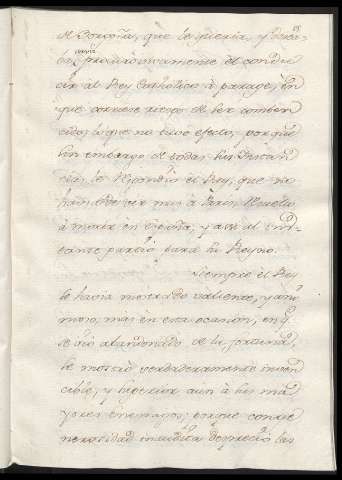 de Borgoña, que le queria, y desea-
ba, procurò vivamente el condu-
cir al Rey Catholico à parage, en
que corriese riesgo de ser comben-
cido, lo que no tuvo efecto, porque
sin embargo de todas sus Instan
cias, le respondiò el Rey, que no
havia de ir mas à Paris,
à morir en España, y assi al ins-
tante partiò para su Reyno.
Siempre el Rey
se havia mostrado valiente, y ani
moso; mas en esta ocasion, en q.
se viò abandonado de la fortuna,
se mostrò verdaderamente inven
cible, y superior aun à sus ma
yores enemigos; porque con ge
nerosidad inaudita despreciò las